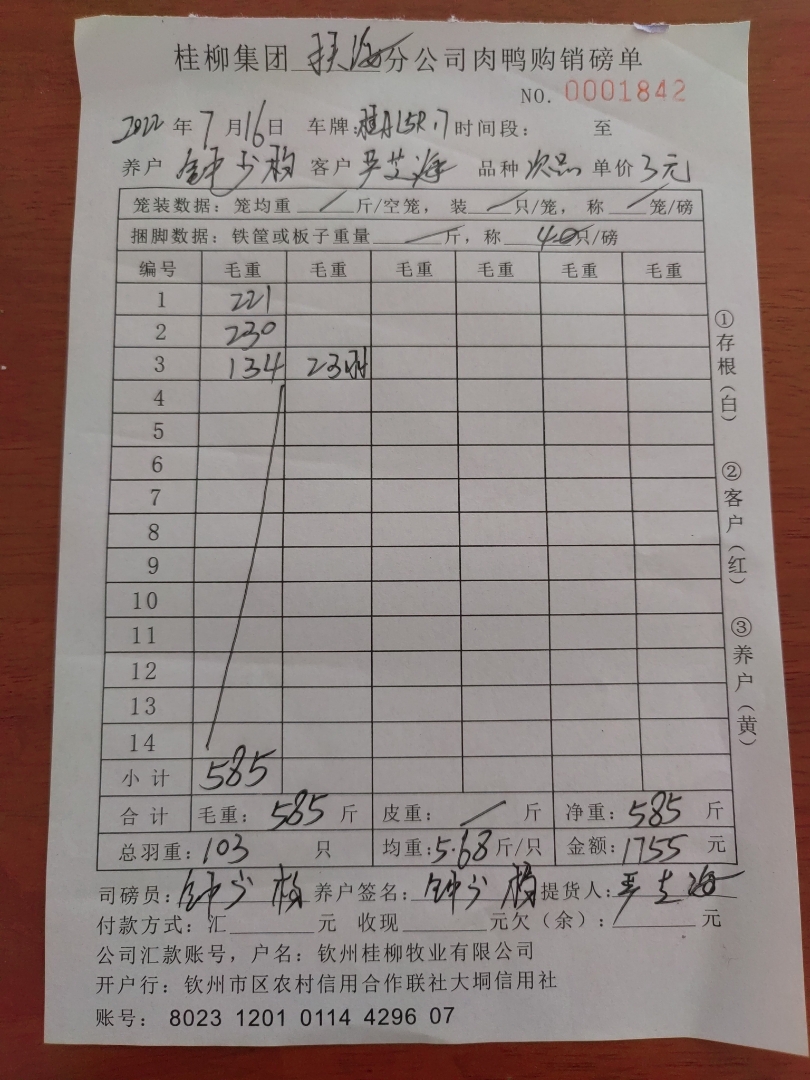 桂柳集团 海分公司肉鸭购销磅单
NO. 0001842
2022 年 7 月 16 日 车牌: 时间段: 至
养户 钟少梅 客户 严芝海 品种 次品 单价 3元
笼装数据: 笼均重 / 斤/空笼, 装 / 只/笼, 称 / 笼/磅
捆脚数据: 铁筐或板子重量 / 斤, 称 40 只/磅
编号 毛重 毛重 毛重 毛重 毛重 毛重
1 221
2 230
3 134 23羽
4
5
6
7
8
9
10
11
12
13
14
小计 585
合计 毛重: 585 斤 皮重: / 斤 净重: 585 斤
总羽重: 103 只 均重: 5.68 斤/只 金额: 1755 元
司磅员: 钟少梅 养户签名: 钟少梅 提货人: 严芝海
付款方式: 汇 元 收现 元欠(余): 元
公司汇款账号, 户名: 钦州桂柳牧业有限公司
开户行: 钦州市区农村信用合作联社大垌信用社
账号: 8023 1201 0114 4296 07
①存根(白)
②客户(红)
③养户(黄)